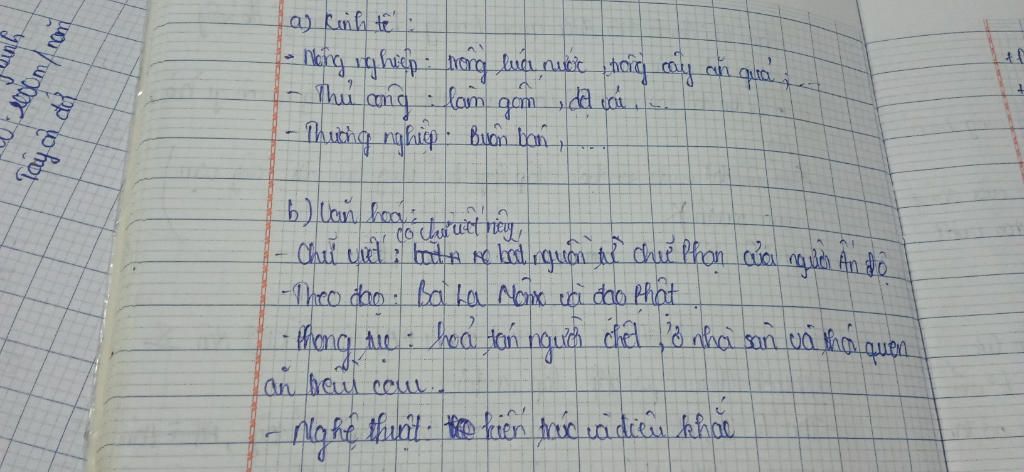 a) Kinh tế :
- Nông nghiệp : trồng lúa nước, trồng cây ăn quả, ...
- Thủ công : làm gốm, dệt vải, ...
- Thương nghiệp : Buôn bán, ...
b) Văn hoá :
có chữ viết riêng,
- Chữ viết : bắt nguồn từ chữ Phạn của người Ấn độ
- Theo đạo : Bà La Môn và đạo Phật
- Phong tục : hoả tán người chết, ở nhà sàn và thói quen
ăn trầu cau.
- Nghệ thuật : kiến trúc và điêu khắc
1000m/năm
Tây ấn độ